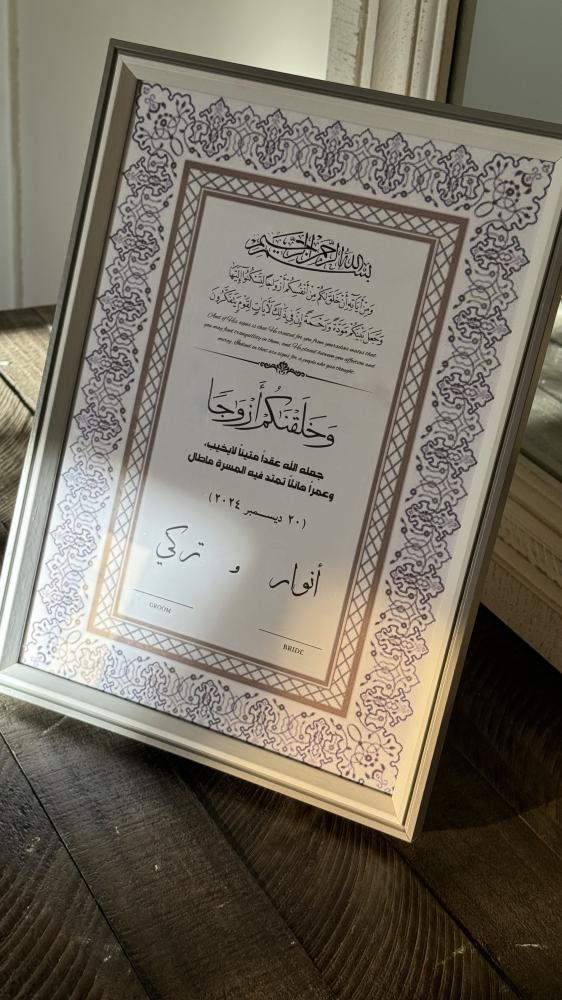 بسم الله الرحمن الرحيم
وَمِنْ آيَاتِهِ أَنْ خَلَقَ لَكُم مِّنْ أَنفُسِكُمْ أَزْوَاجًا لِّتَسْكُنُوا إِلَيْهَا
وَجَعَلَ بَيْنَكُم مَّوَدَّةً وَرَحْمَةً إِنَّ فِي ذَٰلِكَ لَآيَاتٍ لِّقَوْمٍ يَتَفَكَّرُونَ
And of His signs is that He created for you from yourselves mates that
you may find tranquillity in them, and He placed between you affection and
mercy. Indeed in that are signs for a people who give thought.
وَخَلَقْنَاكُمْ أَزْوَاجًا
جعله الله عقداً متيناً لايخيب،
وعمراً هانئاً تمتد فيه المسرة ماطال
(٢٠ ديسمبر ٢٠٢٤)
أنوار و تركي
BRIDE
GROOM